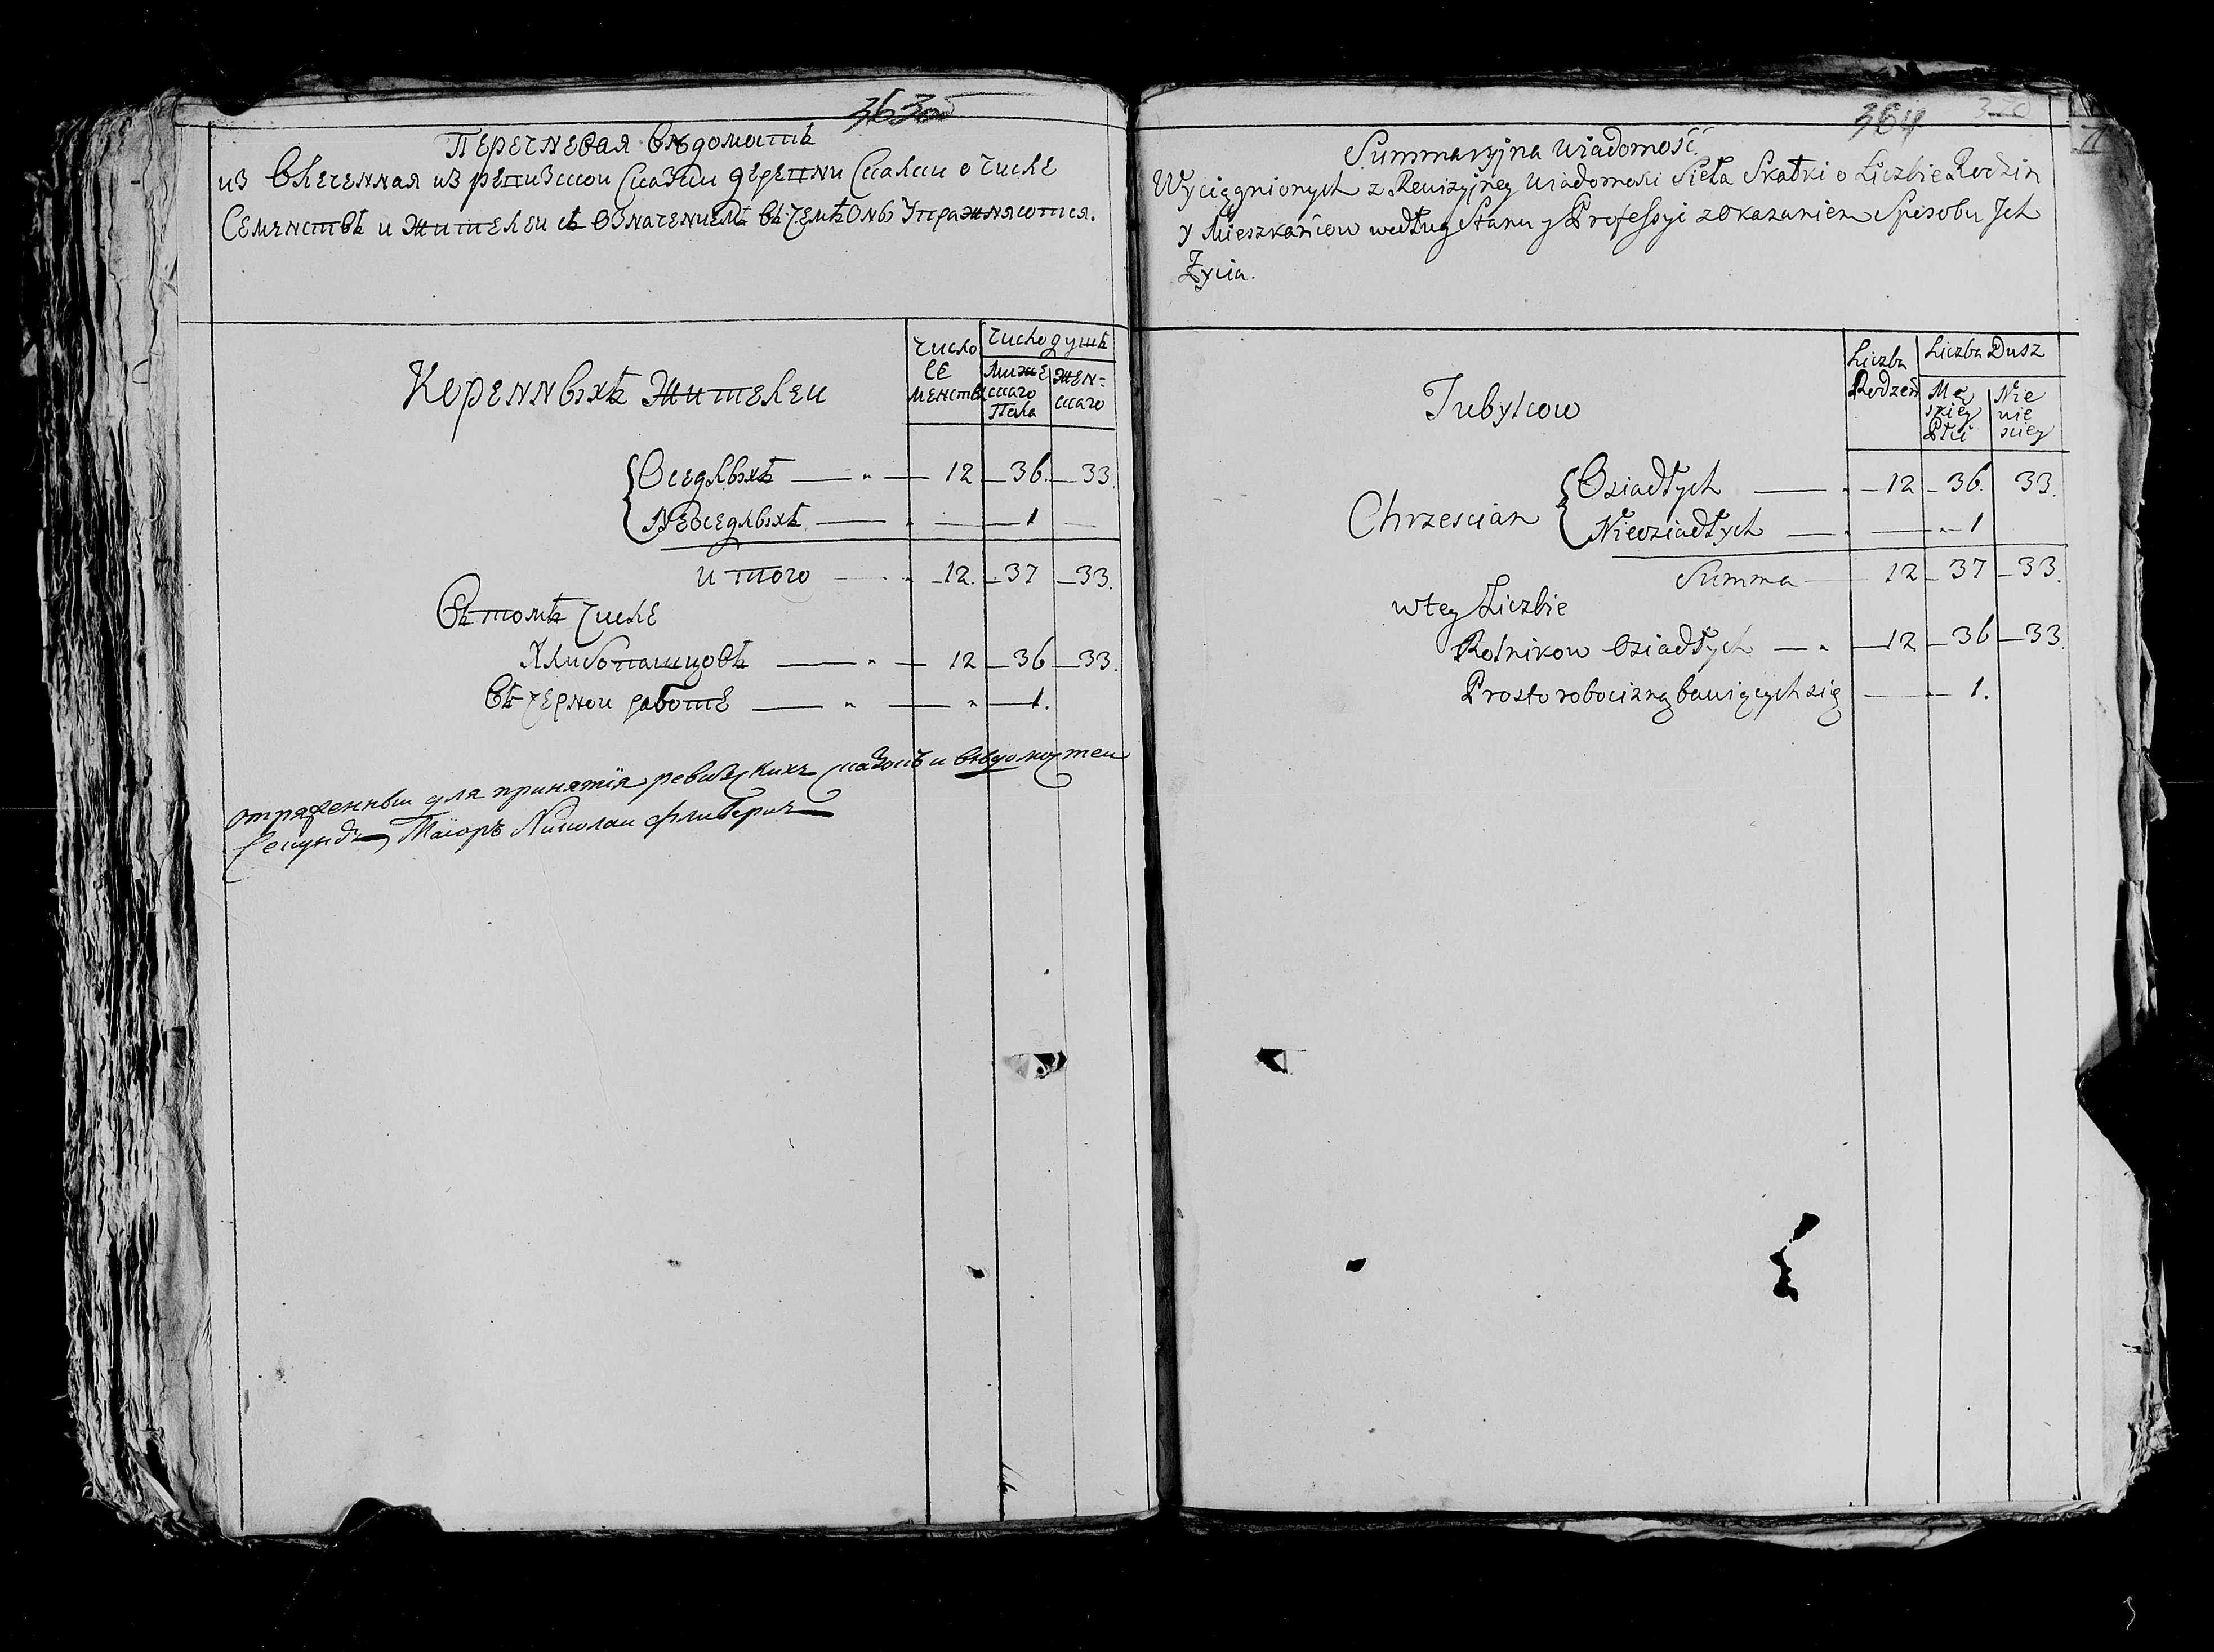 363об
Перечневая Вѣдомость
из Влеченная из ревизской Сказки деревни Скалки о числе
Семенствъ и Жителеи съ Означениемъ въ чемъ Онѣ Упражняются.
Коренныхъ Жителеи
число се менствъ
число душъ
Мужескаго Пола
Женскаго
Оседлыхъ — 12 — 36. — 33.
Неоседлыхъ — 1 —
итого — 12. — 37 — 33.
Въ томъ числе
Хлибопашцовъ — 12 — 36 — 33.
Въ черной работе — 1.
отряженный для принятїя ревизскихъ сказокъ и вѣдомостей
Секундъ Маїоръ Николай
364
370
Summaryjna wiadomość
Wyciągnionych z Rewizyjney Wiadomości Sieła Skałki o Liczbie Rodzin
y Mieszkańcow według Stanu y Professyi z Okazaniem Sposobu Jch
Zycia.
Tubylcow
Liczba Rodzeń
Liczba Dusz
Męskiey Płci
Niewieściey
Chrzescian
Osiadłych — 12 — 36. 33.
Nieosiadłych — 1
Summa — 12 — 37 — 33.
w tey Liczbie
Rolnikow Osiadłych — 12 — 36 — 33.
Prosto robocizną bawiących się — 1.